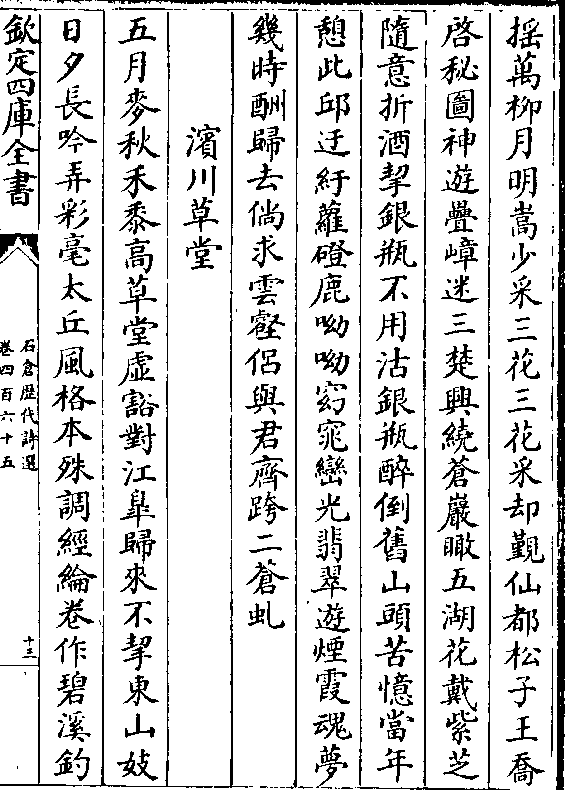 揺萬柳月明嵩少采三花三花采却覲仙都松子王喬
啓秘圖神遊疊嶂迷三楚興繞蒼巖瞰五湖花戴紫芝
隨意折酒挈銀瓶不用沽銀瓶醉倒舊山頭苦憶當年
憩此邱迂紆蘿磴鹿呦呦窈窕巒光翡翠遊煙霞魂夢
幾時酬歸去倘求雲壑侣與君齊跨二蒼虬
濱川草堂
五月麥秋禾黍高草堂虚豁對江臯歸來不挈東山妓
日夕長吟弄彩毫太丘風格本殊調經綸卷作碧溪釣
欽定四庫全書
石倉歴代詩選
卷四百六十五
十三